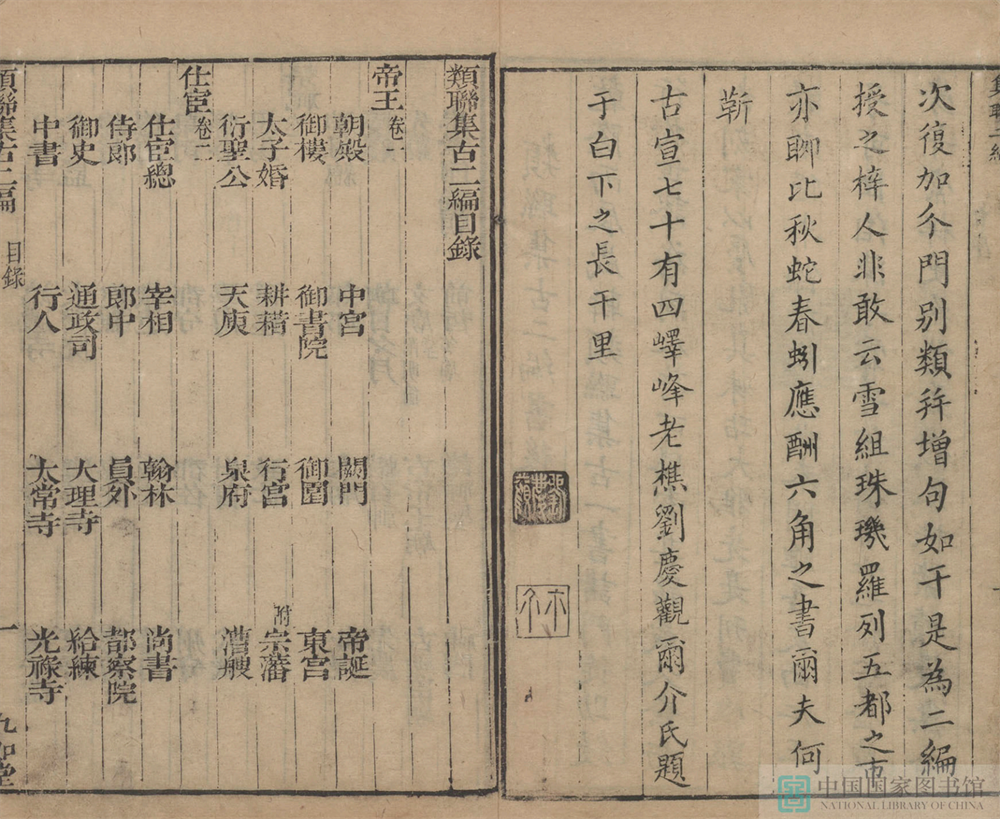 次復加仌門別類幷增句如干是為二編
授之梓人非敢云雪組珠璣羅列五都之市
亦聊比秋蛇春蚓應酬六角之書爾夫何
蕲
古宣七十有四嶧峰老樵劉慶觀爾介氏題
于白下之長干里
類聯集古二編目錄
帝王 卷一
朝殿 中宮 闕門 帝誕
御樓 御書院 御圍 東宮
太子婚 耕耤 行宮 附宗藩
衍聖公 天庾 泉府 漕艘
仕宦 卷二
仕宦總 宰相 翰林 尚書
侍郎 郎中 員外 都察院
御史 通政司 大理寺 給練
中書 行人 太常寺 光祿寺
類聯集古二編 目錄 一
中国国家图书馆
NATIONAL LIBRARY OF CHINA